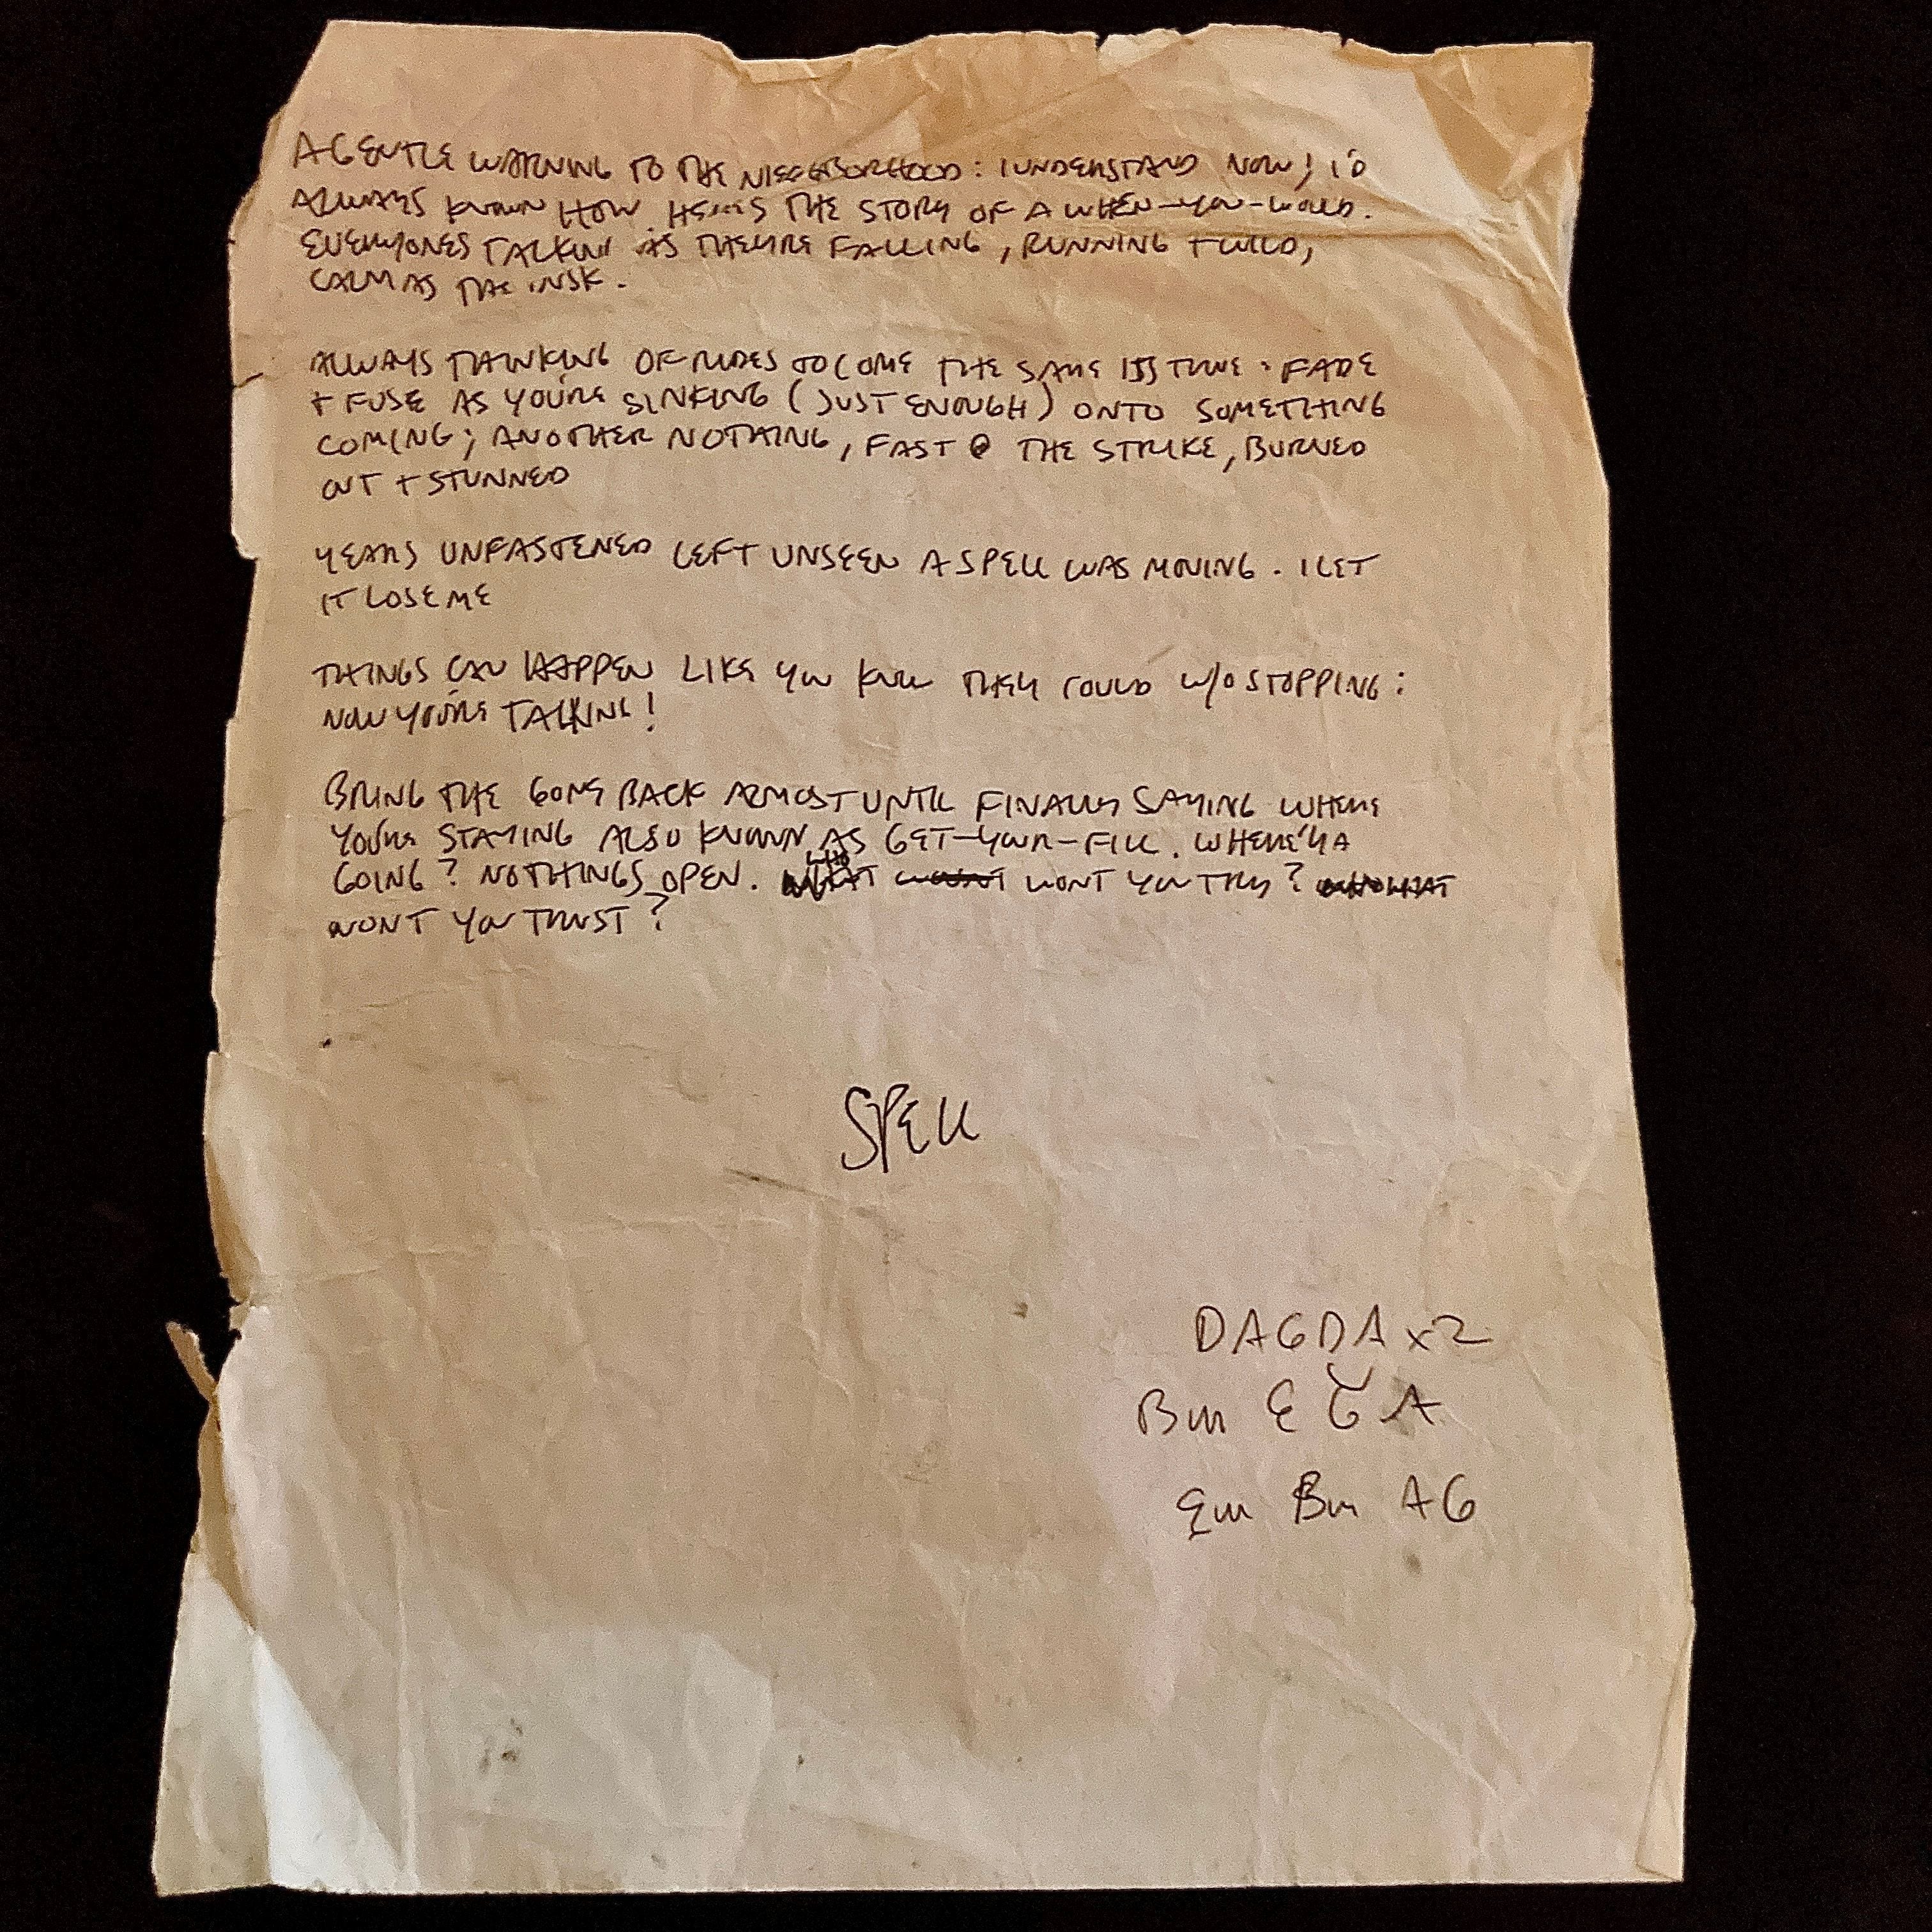 A GENTLE WARNING TO THE NIEGHBORHOOD: I UNDERSTAND NOW; I'D
ALWAYS KNOWN HOW. HERES THE STORY OF A WHEN-YOU-WOULD.
EVERYONES TALKIN' AS THEYRE FALLING, RUNNING + WILD,
CALM AS THE INSK.
ALWAYS THINKING OF RIDES TO COME THE SAME IS TRUE: FADE
+ FUSE AS YOU'RE SINKING (JUST ENOUGH) ONTO SOMETHING
COMING; ANOTHER NOTHING, FAST @ THE STRIKE, BURNED
OUT + STUNNED
YEARS UNFASTENED LEFT UNSEEN A SPELL WAS MOVING. I LET
IT LOSE ME
THINGS CAN HAPPEN LIKE YOU KNEW THEY COULD W/O STOPPING:
NOW YOU'RE TALKING!
BRING THE GONG BACK ALMOST UNTIL FINALLY SAYING WHERE
YOU'RE STAYING ALSO KNOWN AS GET-YOUR-FILL. WHERE'YA
GOING? NOTHINGS OPEN. WHO WONT YOU TRY?
WONT YOU TRUST?
SPELL
DAGDA x2
Bm E G A
Em Bm A G